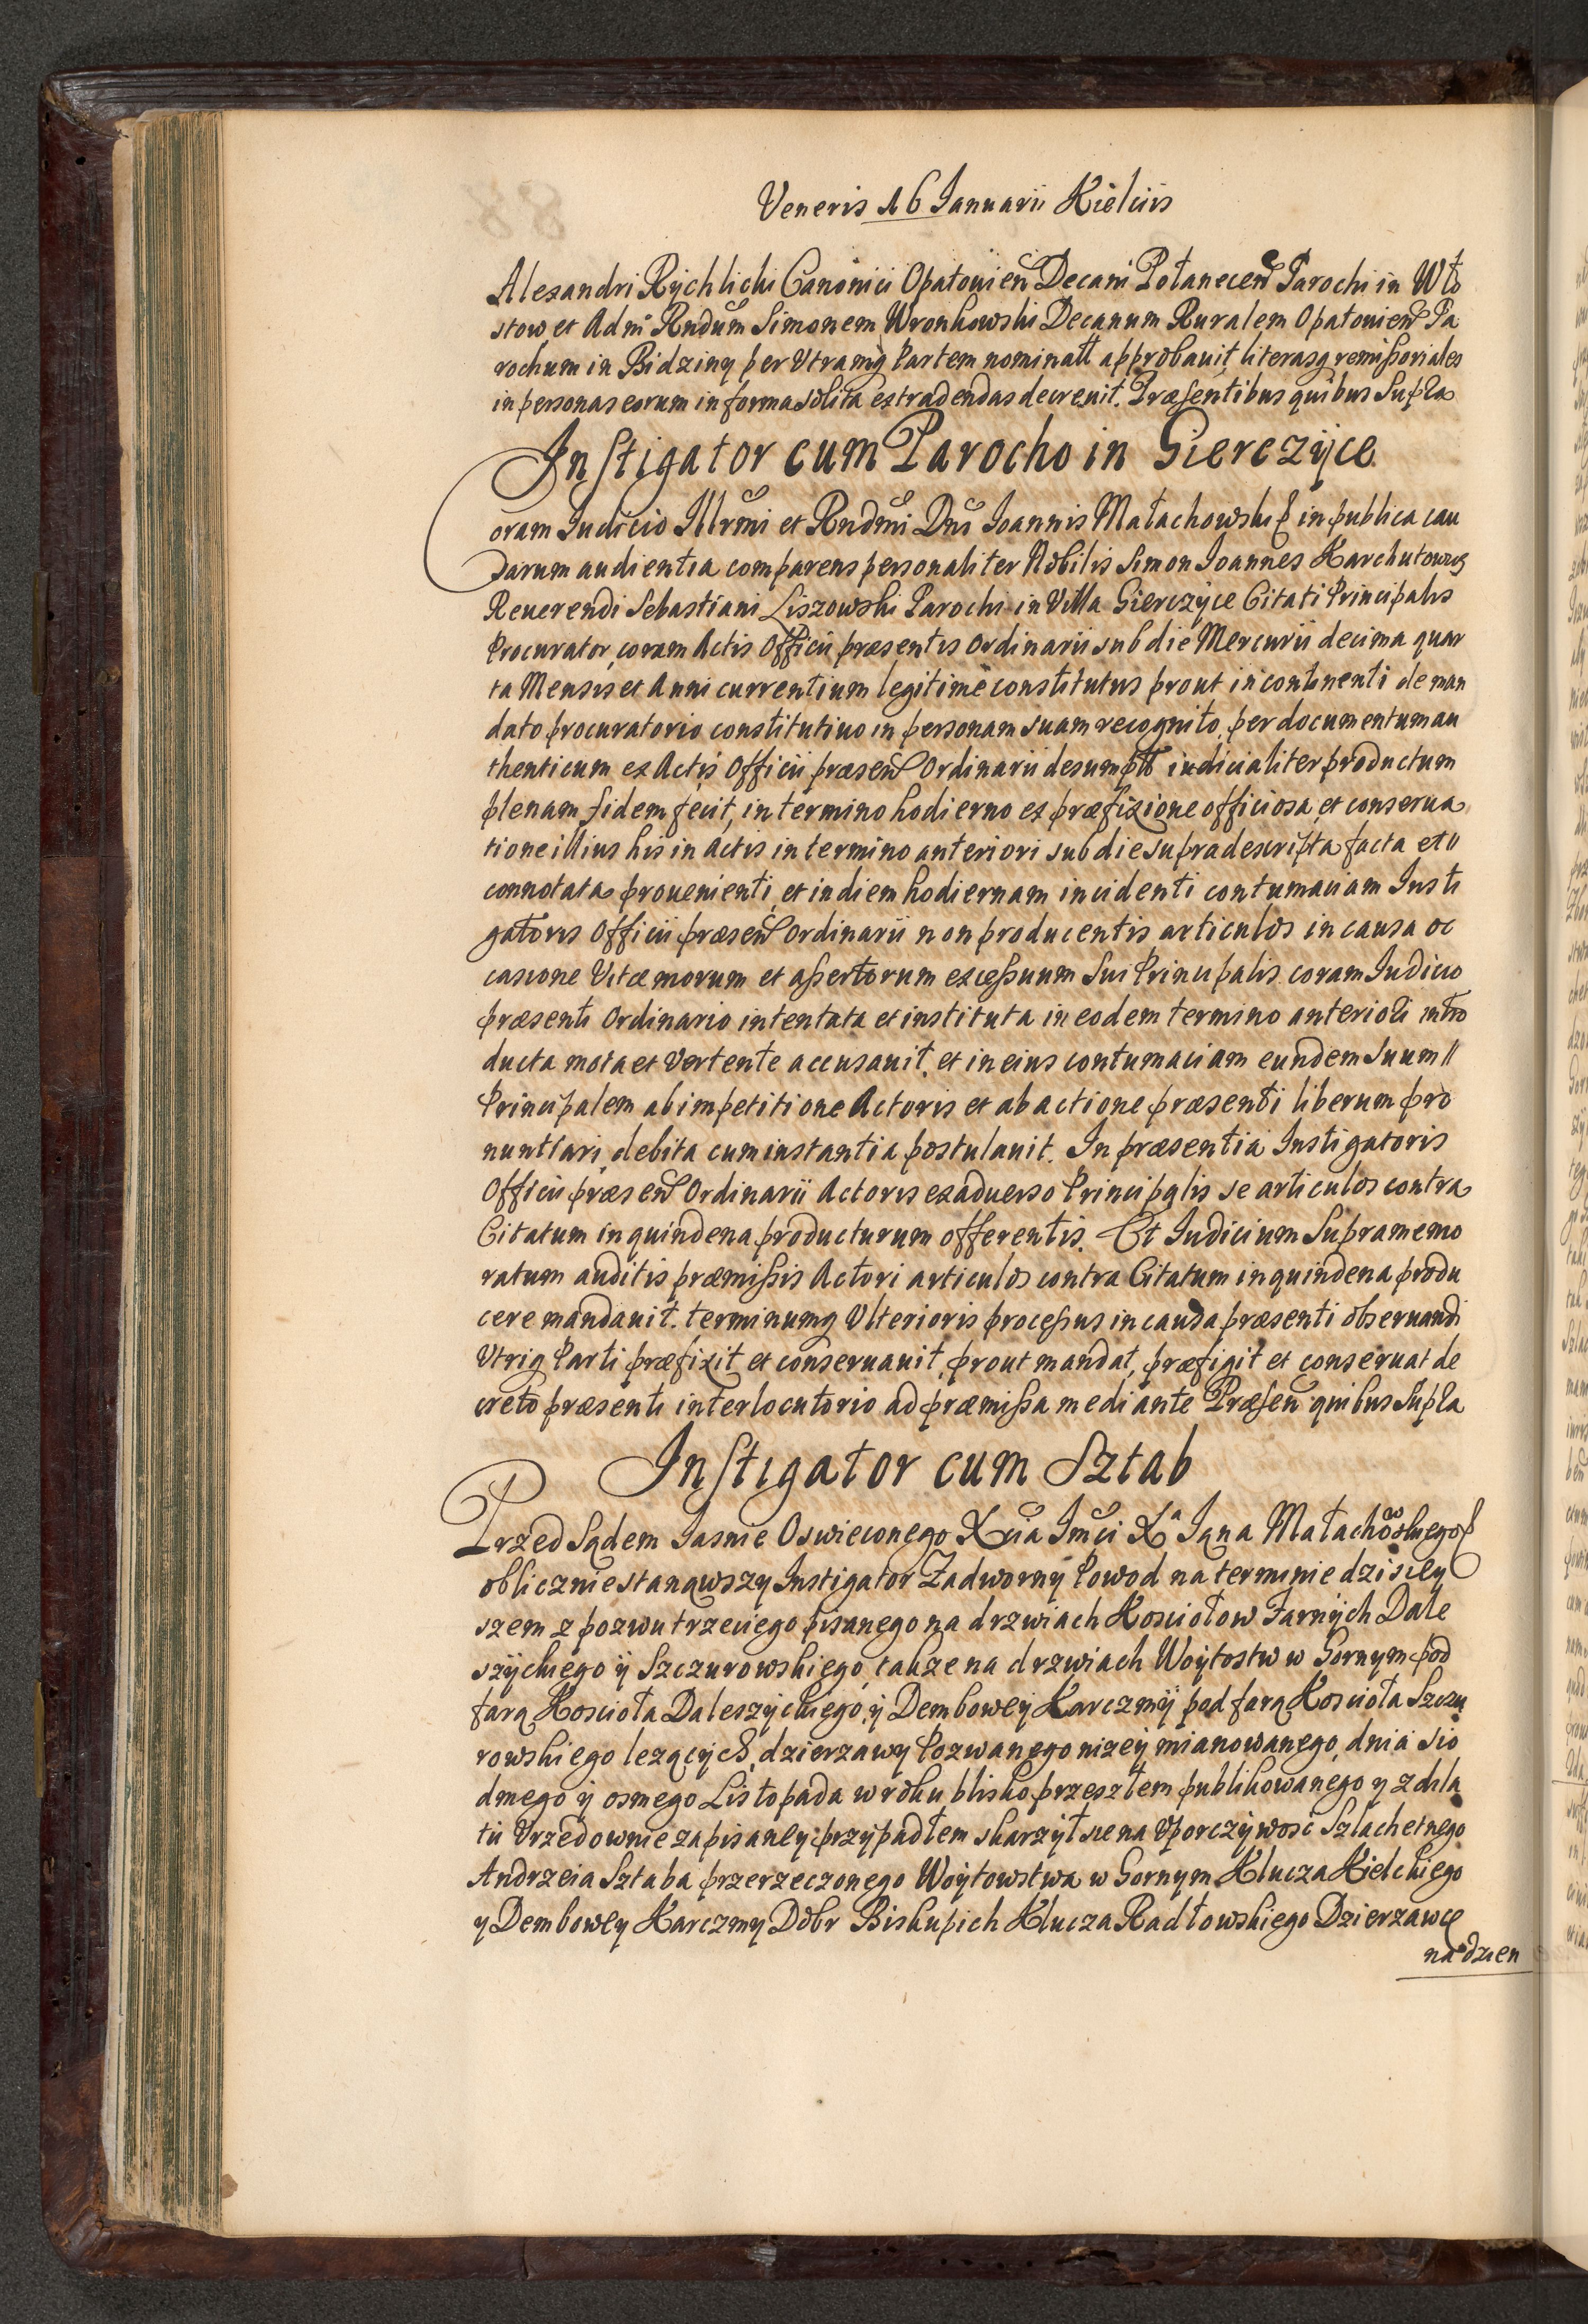 Veneris 16 Ianuarii Kielciis
Alexandri Rychlicki Canonici Opatovien Decani Połanecen Parochi in Wło
stow et Adm Rndum Simonem Wronkowski Decanum Ruralem Opatovien Pa
rochum in Bidziny per Vtramq Partem nominatt approbauit literasq remissoriales
in personas eorum in forma solita extradendas decreuit. Præsentibus quibus Supra
Instigator cum Parocho in Gierczyce
Coram Iudicio Illrmi et Rndmi Dni Ioannis Małachowski in publica cau
sarum audientia comparens personaliter Nobilis Simon Ioannes Karchutowicz
Reuerendi Sebastiani Liszowski Parochi in Villa Gierczyce Citati Principalis
Procurator, coram Actis Officii præsentis Ordinarii sub die Mercurii decima quar
ta Mensis et Anni currentium legitime constitutus prout in continenti de man
dato procuratorio constitutiuo in personam suam recognito, per documentum au
thenticum ex Actis Officii præsen Ordinarii desumpto iudicialiter productum
plenam fidem fecit, in termino hodierno ex præfixione officiosa et conserua
tione illius his in Actis in termino anteriori sub die supradescripta facta et
connotata prouenienti, et in diem hodiernam incidenti contumaciam Insti
gatoris Officii præsen Ordinarii non producentis articulos in causa oc
casione Vitæ morum et assertorum excessuum Sui Principalis coram Iudicio
præsenti Ordinario intentata et instituta in eodem termino anteriori intro
ducta mota et Vertente accusauit, et in eius contumaciam eundem suum
Principalem ab impetitione Actoris et ab actione præsenti liberum pro
nuntiari, debita cum instantia postulauit. In præsentia Instigatoris
Officii præsen Ordinarii Actoris ex aduerso Principalis se articulos contra
Citatum in quindena producturum offerentis. Et Iudicium Supramemo
ratum auditis præmissis Actori articulos contra Citatum in quindena produ
cere mandauit. terminumq Vlterioris processus in causa præsenti obseruandi
Vtriq Parti præfixit et conseruauit, prout mandat, præfigit et conseruat de
creto præsenti interlocutorio ad præmissa mediante Præsen quibus Supra
Instigator cum Sztab
Przed Sądem Iasnie Oswieconego Xcia Imci Xa Iana Małachowskiego
oblicznie stanąwszy Instigator Zadworny Powod na terminie dzisiey
szem z pozwu trzeciego pisanego na drzwiach Kosciołow Farnych Dale
szyckiego ÿ Szczurowskiego, takze na drzwiach Woytostw w Gornym pod
farą Koscioła Daleszyckiego, ÿ Dembowey Karczmÿ pod farą Koscioła Szczu
rowskiego lezących, dzierzawy Pozwanego nizey mianowanego, dnia sio
dmego ÿ osmego Listopada w roku blisko przeszłem publikowanego y z dila
tii Vrzedownie zapisaney przÿpadłem skarzył sie na Vporczywosc Szlachetnego
Andrzeia Sztaba przerzeczonego Woytowstwa w Gornym Klucza Kielckiego
y Dembowey Karczmy Dobr Biskupich Klucza Radłowskiego Dzierzawcę
na dzien